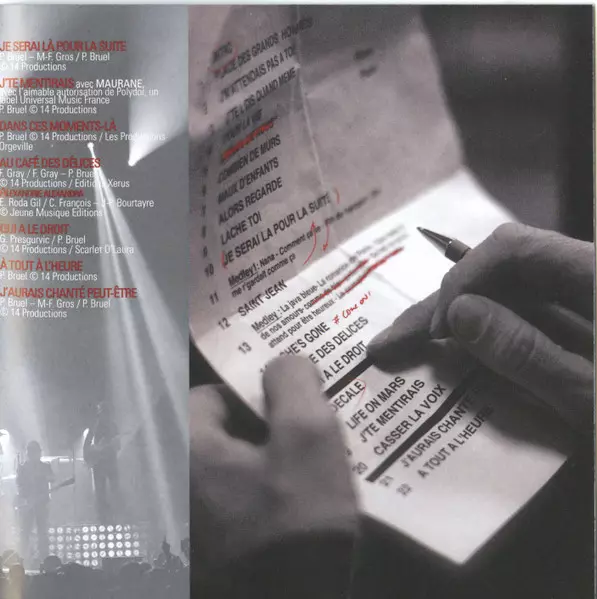 JE SERAI LÀ POUR LA SUITE
P. Bruel – M-F. Gros / P. Bruel
© 14 Productions
J'TE MENTIRAIS avec MAURANE,
avec l'aimable autorisation de Polydor, un
label Universal Music France
P. Bruel © 14 Productions
DANS CES MOMENTS-LÀ
P. Bruel © 14 Productions / Les Productions
Orgeville
AU CAFÉ DES DÉLICES
F. Gray / F. Gray – P. Bruel
© 14 Productions / Editions Xerus
ALEXANDRIE ALEXANDRA
E. Roda Gil / C. François – J-P. Bourtayre
© Jeune Musique Editions
QUI A LE DROIT
G. Presgurvic / P. Bruel
© 14 Productions / Scarlet O'Laura
À TOUT À L'HEURE
P. Bruel © 14 Productions
J'AURAIS CHANTÉ PEUT-ÊTRE
P. Bruel – M-F Gros / P. Bruel
© 14 Productions
PLACE DES GRANDS HOMMES
J'T'ATTENDAIS PAS A TOI
J'TE L'DIS QUAND MEME
POUR LA VIE
COMBIEN DE MURS
MAUX D'ENFANTS
8 ALORS REGARDE
9 LACHE TOI
10 JE SERAI LA POUR LA SUITE
11 Medley1: Nana - Comment
me r'gardait comme ça
12 SAINT JEAN
13 Medley: La java bleue- La romance
de nos amours-
attend pour être heureux - La
SHE'S GONE # come on!
E DES DELICES
A LE DROIT
DECALE
LIFE ON MARS
J'TE MENTIRAIS
20 CASSER LA VOIX
21 J'AURAIS CHANTE
22 A TOUT A L'HEURE